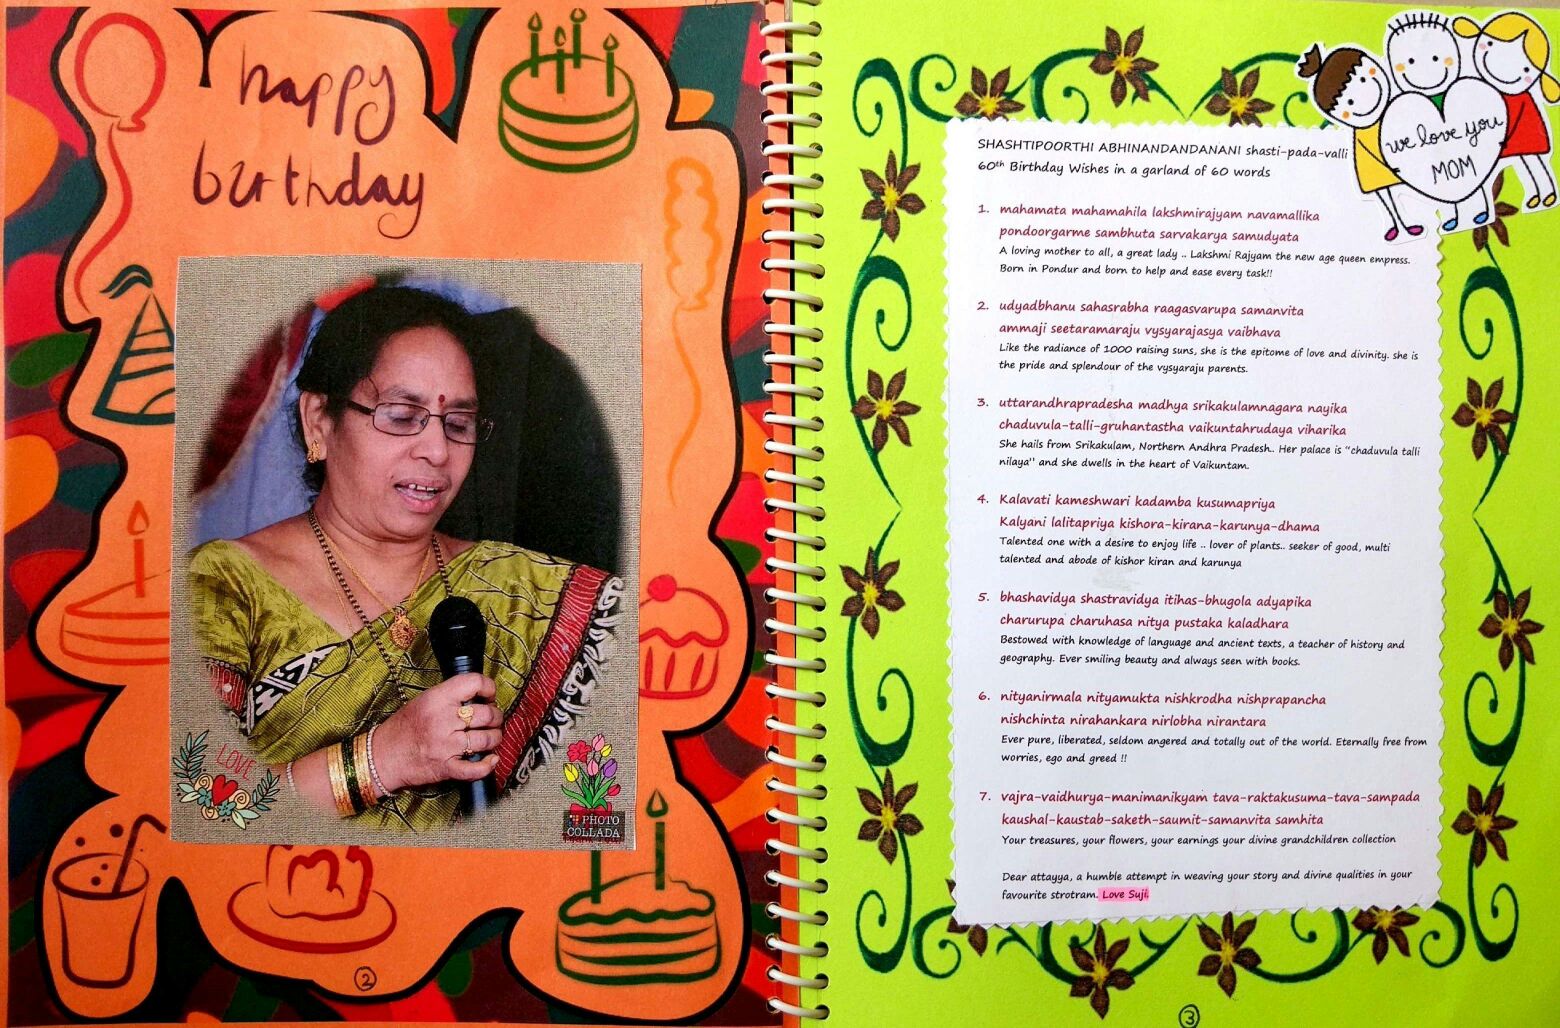 happy
birthday
LOVE
PHOTO
COLLADA
2
we love you
MOM
SHASHTIPOORTHI ABHINANDANDANANI shasti-pada-valli
60th Birthday Wishes in a garland of 60 words
1. mahamata mahamahila lakshmirajyam navamallika
pondoorgarme sambhuta sarvakarya samudyata
A loving mother to all, a great lady .. Lakshmi Rajyam the new age queen empress.
Born in Pondur and born to help and ease every task!!
2. udyadbhanu sahasrabha raagasvarupa samanvita
ammaji seetaramaraju vysyarajasya vaibhava
Like the radiance of 1000 raising suns, she is the epitome of love and divinity. she is
the pride and splendour of the vysyaraju parents.
3. uttarandhrapradesha madhya srikakulamnagara nayika
chaduvula-talli-gruhantastha vaikuntahrudaya viharika
She hails from Srikakulam, Northern Andhra Pradesh.. Her palace is "chaduvula talli
nilaya" and she dwells in the heart of Vaikuntam.
4. Kalavati kameshwari kadamba kusumapriya
Kalyani lalitapriya kishora-kirana-karunya-dhama
Talented one with a desire to enjoy life .. lover of plants.. seeker of good, multi
talented and abode of kishor kiran and karunya
5. bhashavidya shastravidya itihas-bhugola adyapika
charurupa charuhasa nitya pustaka kaladhara
Bestowed with knowledge of language and ancient texts, a teacher of history and
geography. Ever smiling beauty and always seen with books.
6. nityanirmala nityamukta nishkrodha nishprapancha
nishchinta nirahankara nirlobha nirantara
Ever pure, liberated, seldom angered and totally out of the world. Eternally free from
worries, ego and greed !!
7. vajra-vaidhurya-manimanikyam tava-raktakusuma-tava-sampada
kaushal-kaustab-saketh-saumit-samanvita samhita
Your treasures, your flowers, your earnings your divine grandchildren collection
Dear attayya, a humble attempt in weaving your story and divine qualities in your
favourite strotram. Love Suji.
3